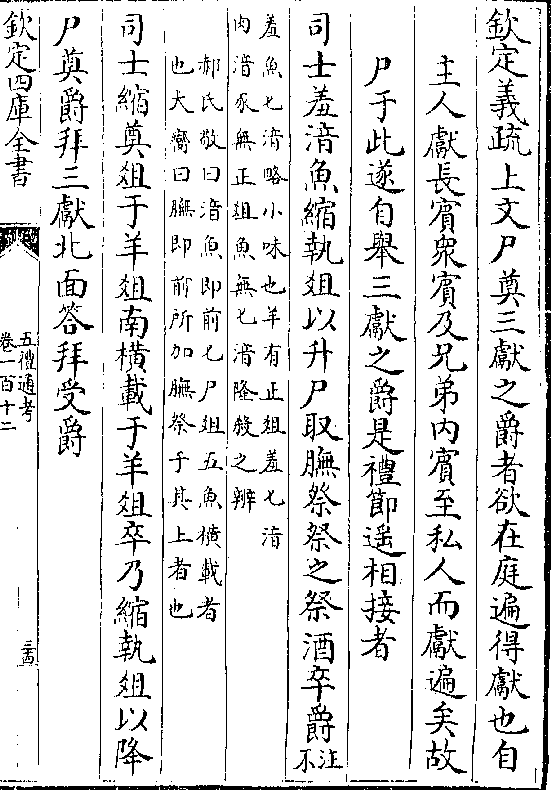 欽定義疏上文尸奠三獻之爵者欲在庭遍得獻也自
主人獻長賓衆賓及兄弟內賓至私人而獻遍矣故
尸于此遂自舉三獻之爵是禮節遥相接者
司士羞湆魚縮執俎以升尸取膴祭祭之祭酒卒爵注不
羞魚匕湆略小味也羊有正俎羞匕湆
肉湆豕無正俎魚無匕湆隆殺之辨
郝氏敬曰湆魚即前匕尸俎五魚横載者
也大臠曰膴即前所加膴祭于其上者也
司士縮奠俎于羊俎南橫載于羊俎卒乃縮執俎以降
尸奠爵拜三獻北面答拜受爵
欽定四庫全書
五禮通考
卷一百十二
三四